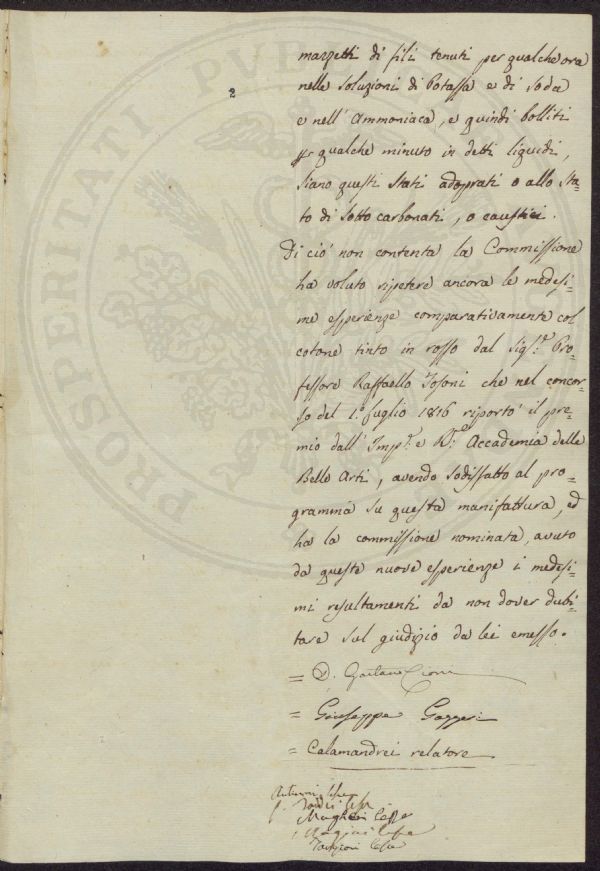 2
mazzetti di fili tenuti per qualche ora
nelle soluzioni di Potassa e di soda
e nell' Ammoniaca, e quindi bolliti
per qualche minuto in detti liquidi,
siano questi stati adoprati o allo sta=
to di sotto carbonati, o caustici.
Di ciò non contenta la Commissione
ha voluto ripetere ancora le medesi=
me esperienze comparativamente col
cotone tinto in rosso dal Sig.r Pro=
fessore Raffaello Tosoni che nel concor=
so del 1.o Luglio 1816 riportò il pre=
mio dall' Imp.e e R.e Accademia delle
Belle Arti, avendo sodisfatto al pro=
gramma su questa manifattura, ed
ha la commissione nominata, avuto
da queste nuove esperienze i medesi=
mi resultamenti da non dover dubi=
tare sul giudizio da lei emesso.
= D. Gaetano Cioni
= Giuseppe Gazzeri
= Calamandrei relatore
PROSPERITATI PUB